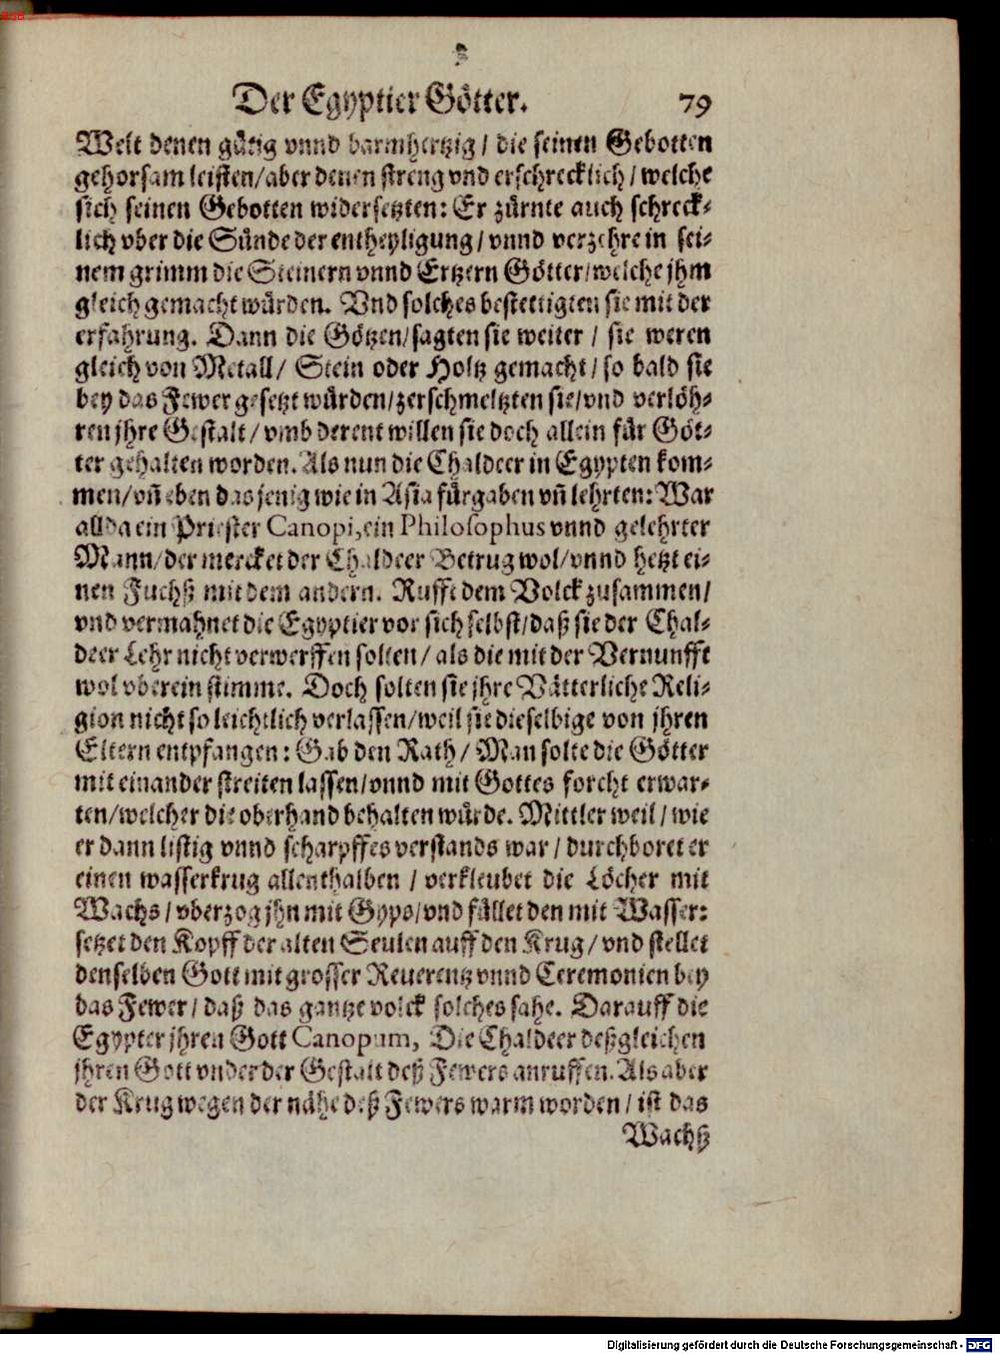 Der Egyptier Götter. 79
Welt denen gütig vnnd barmhertzig / die seinen Gebotten
gehorsam leisten/aber denen streng vnd erschrecklich / welche
sich seinen Gebotten widersetzten: Er zürnte auch schreck-
lich vber die Sünde der entheyligung / vnnd verzehre in sei-
nem grimm die Steinern vnnd Ertzern Götter/welche jhm
gleich gemacht würden. Vnd solches bestettigten sie mit der
erfahrung. Dann die Götzen/sagten sie weiter / sie weren
gleich von Metall/ Stein oder Holtz gemacht / so bald sie
bey das Fewer gesetzt würden/zerschmeltzten sie/vnd verlöh-
ren jhre Gestalt / vmb derent willen sie doch allein für Göt-
ter gehalten worden. Als nun die Chaldeer in Egypten kom-
men/vñ eben das jenig wie in Asia fürgaben vñ lehrten: War
allda ein Priester Canopi, ein Philosophus vnnd gelehrter
Mann/der mercket der Chaldeer Betrug wol/vnnd hetzt ei-
nen Fuchß mit dem andern. Rufft dem Volck zusammen/
vnd vermahnet die Egyptier vor sich selbst/daß sie der Chal-
deer Lehr nicht verwerffen solten / als die mit der Vernunfft
wol vberein stimme. Doch solten sie jhre Vätterliche Reli-
gion nicht so leichtlich verlassen/weil sie dieselbige von jhren
Eltern entpfangen: Gab den Rath / Man solte die Götter
mit einander streiten lassen/vnnd mit Gottes forcht erwar-
ten/welcher die oberhand behalten würde. Mittler weil / wie
er dann listig vnnd scharpffes verstands war / durchboret er
einen wasserkrug allenthalben / verkleubet die Löcher mit
Wachs / vberzog jhn mit Gyps/vnd füllet den mit Wasser:
setzet den Kopff der alten Seulen auff den Krug / vnd stellet
denselben Gott mit grosser Reuerentz vnnd Ceremonien bey
das Fewer / daß das gantze volck solches sahe. Darauff die
Egypter jhren Gott Canopum, Die Chaldeer deßgleichen
jhren Gott vnder der Gestalt deß Fewers anruffen. Als aber
der Krug wegen der nähe deß Fewers warm worden / ist das
Wachß
Digitalisierung gefördert durch die Deutsche Forschungsgemeinschaft - DFG